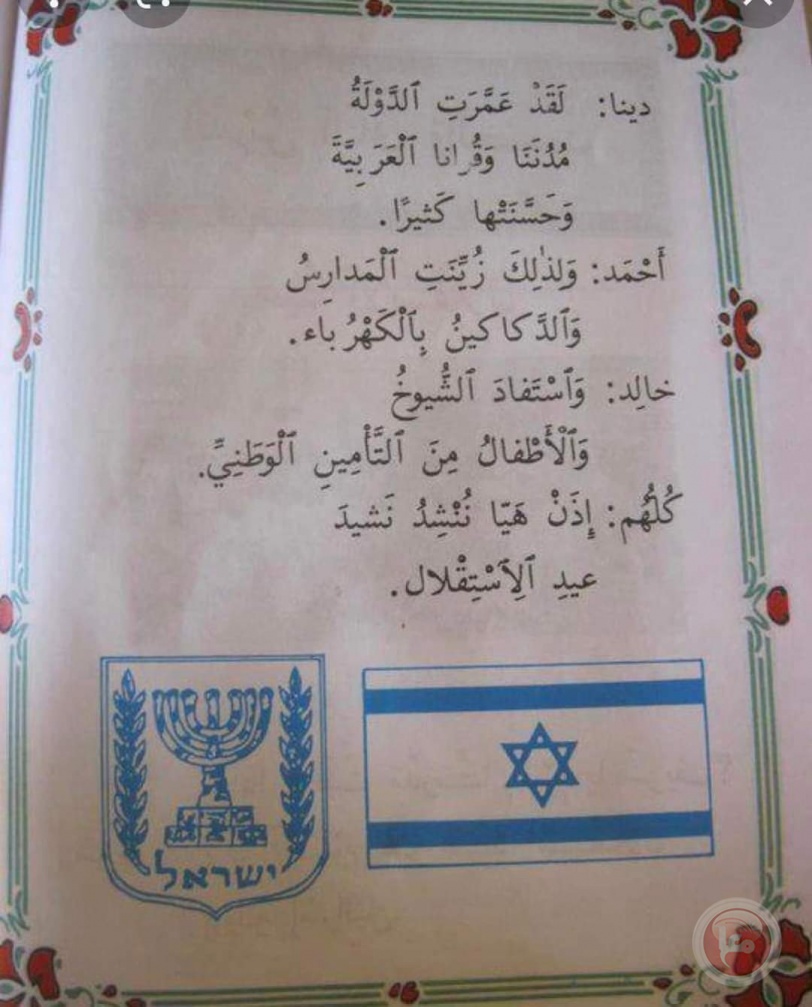 دينا: لَقَدْ عَمَّرَتِ ٱلدَّوْلَةُ
مُدُنَنَا وَقُرانا ٱلْعَرَبِيَّةَ
وَحَسَّنَتْها كَثيرًا.
أَحْمَد: وَلذٰلِكَ زُيِّنَتِ ٱلْمَدارِسُ
وَٱلدَّكاكينُ بِٱلْكَهْرُباء.
خالِد: وَٱسْتَفادَ ٱلشُّيوخُ
وَٱلْأَطْفالُ مِنَ ٱلتَّأْمِينِ ٱلْوَطَنِيِّ.
كُلُّهُم: إِذَنْ هَيّا نُنْشِدُ نَشيدَ
عيدِ ٱلِٱسْتِقْلال.
ישראל
معا